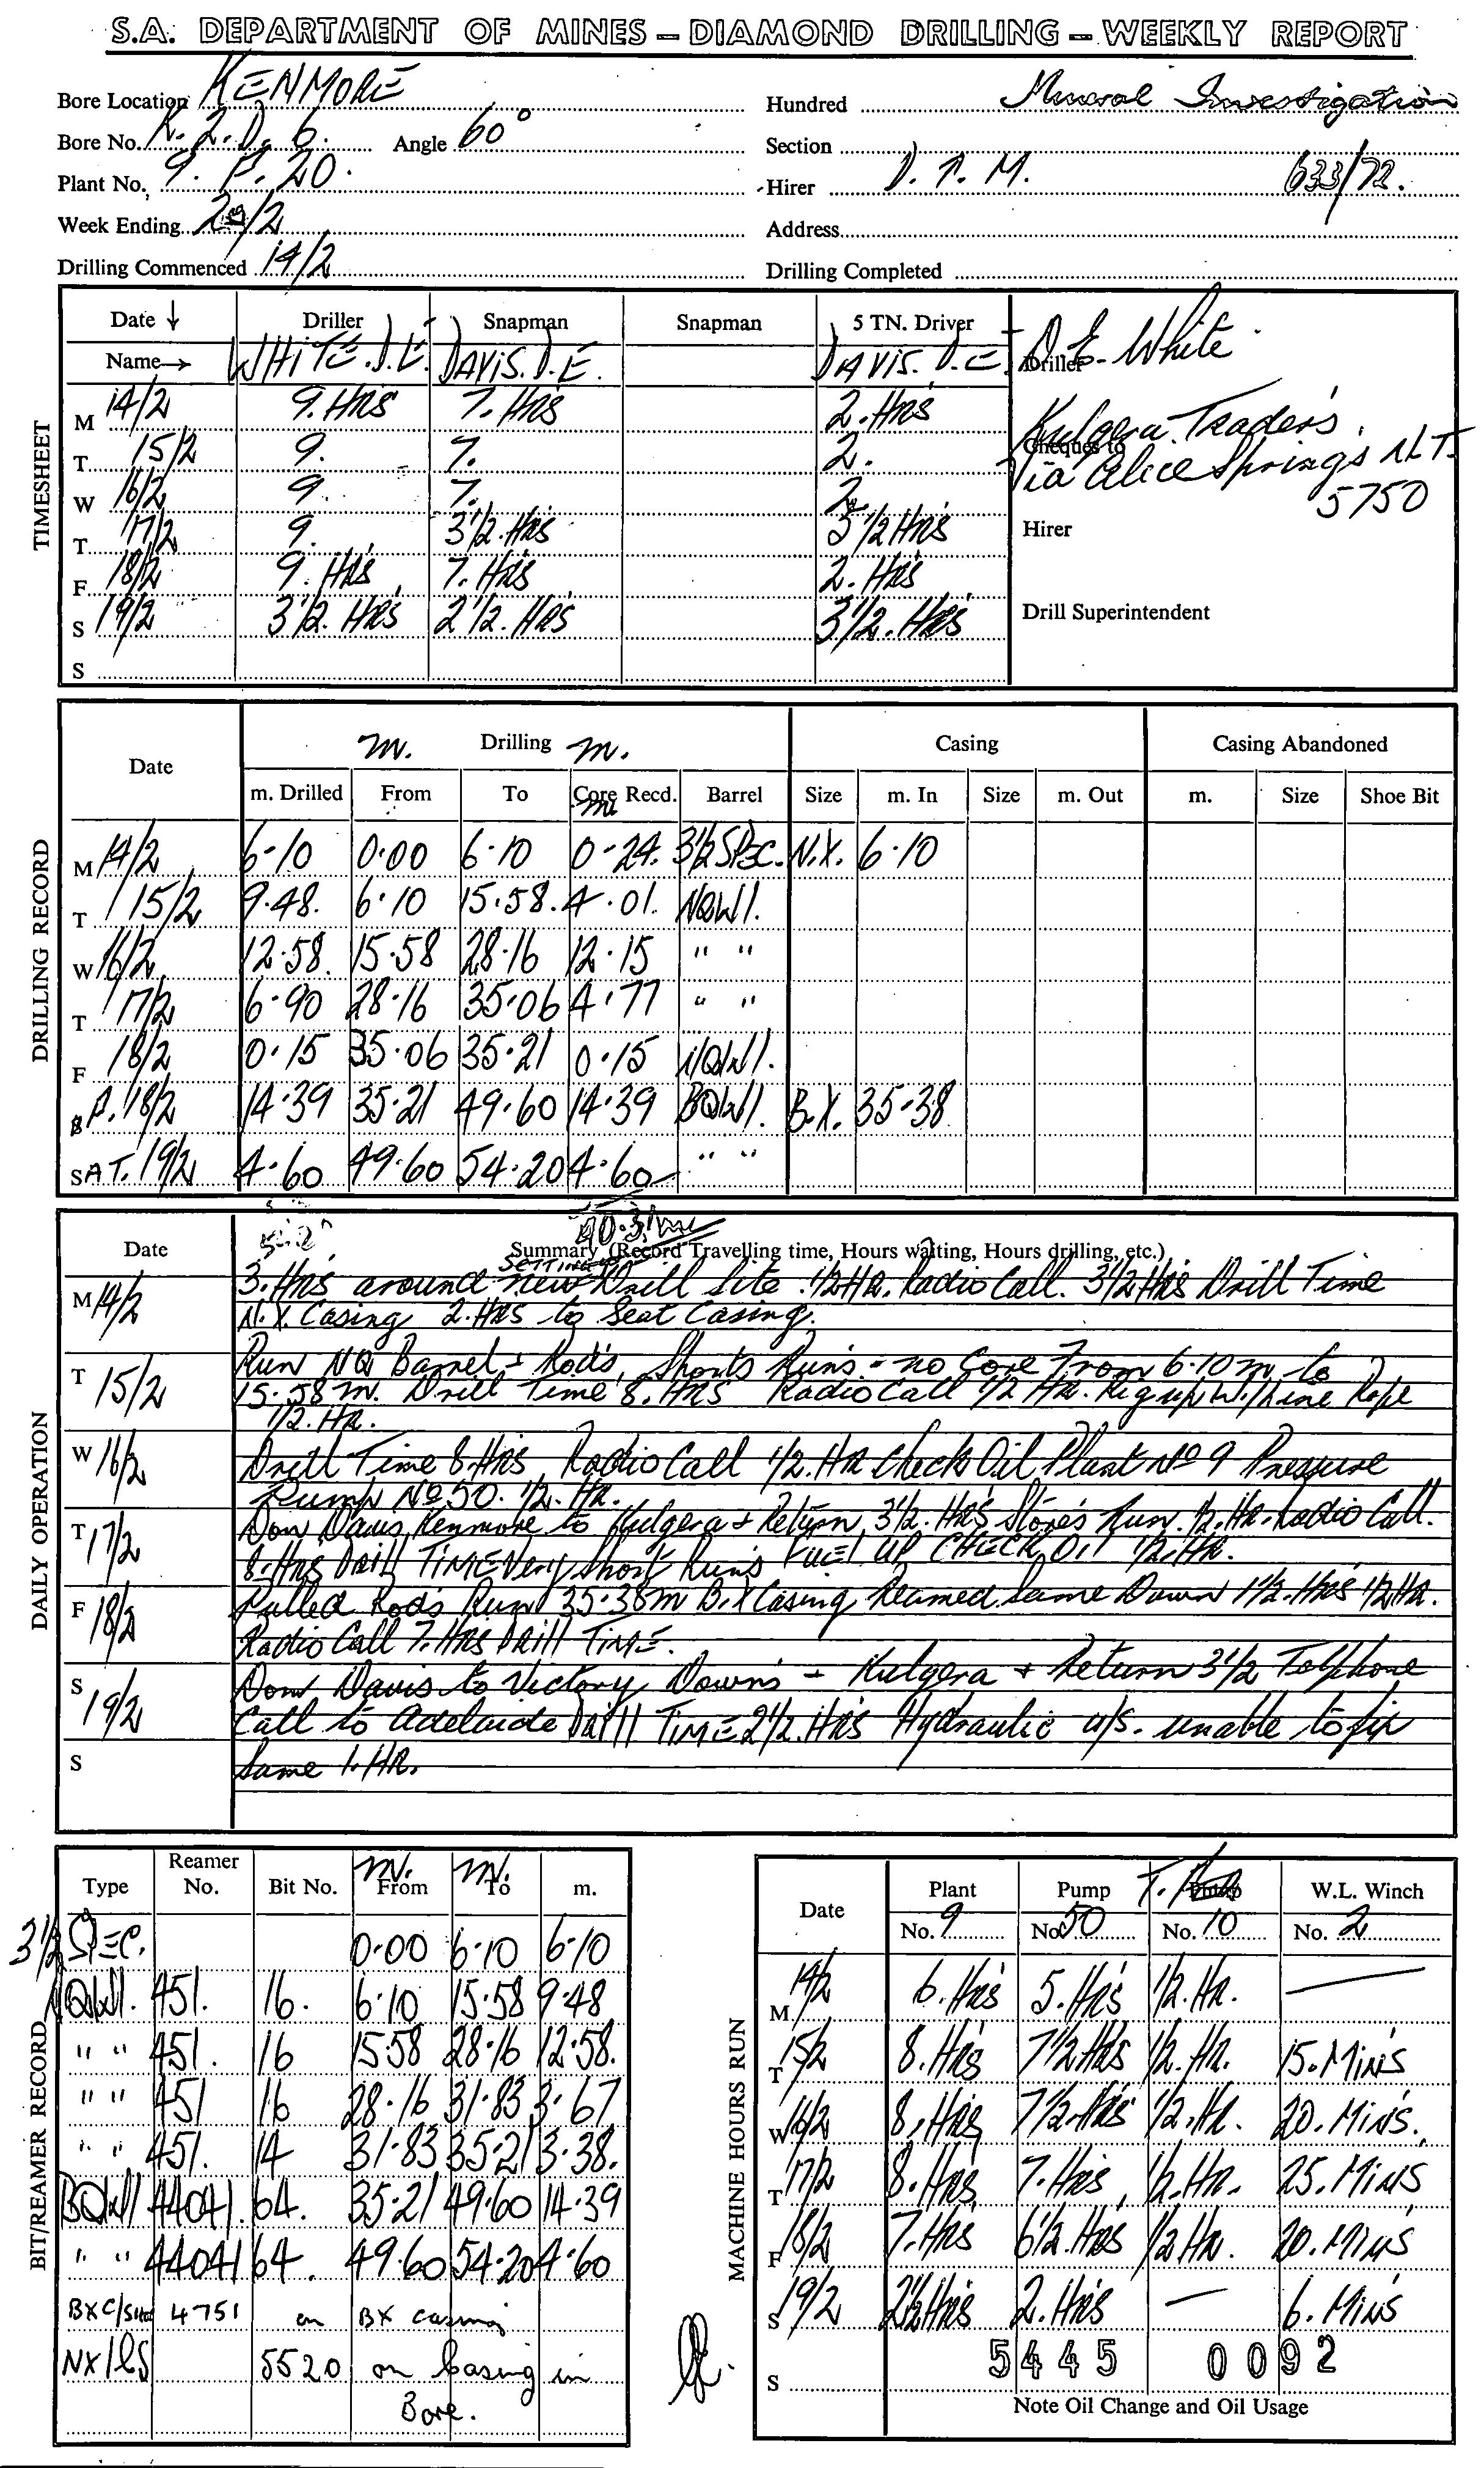 S.A. DEPARTMENT OF MINES – DIAMOND DRILLING – WEEKLY REPORT
Bore Location KENMORE Hundred Mineral Investigation
Bore No. K. 2. D. 6. Angle 60° Section
Plant No. 9. P. 20. Hirer D. P. M. 633/72.
Week Ending /2 Address
Drilling Commenced 14/2 Drilling Completed
TIMESHEET
Date ↓ Driller Snapman Snapman 5 TN. Driver
Name→ WHITE. D.E. DAVIS. D.E. DAVIS. D.E. Driller D.E. White
M 14/2 9. HRS 7. HRS 2. HRS
T 15/2 9. 7. 2. Cheques to Kulgera Traders.
W 16/2 9. 7. 2. Via Alice Springs N.T. 5750
T 17/2 9. 3 1/2. HRS 5 1/2 HRS Hirer
F 18/2 9. HRS 7. HRS 2. HRS
S 19/2 3 1/2. HRS 2 1/2. HRS 3 1/2. HRS Drill Superintendent
S
DRILLING RECORD
Date m. Drilling m. Casing Casing Abandoned
m. Drilled From To Core Recd. m Barrel Size m. In Size m. Out m. Size Shoe Bit
M 14/2 6·10 0·00 6·10 0·24. 3 1/2 SPEC. N.X. 6·10
T 15/2 9·48. 6·10 15·58. 4·01. NQW/l.
W 16/2 12·58. 15·58 28·16 12·15 " "
T 17/2 6·90 28·16 35·06 4·77 " "
F 18/2 0·15 35·06 35·21 0·15 NQW/l.
F. 18/2 14·39 35·21 49·60 14·39 BQW/l. B.X. 35·38
SAT. 19/2 4·60 49·60 54·20 4·60 " "
40·31m
DAILY OPERATION
Date Summary (Record Travelling time, Hours waiting, Hours drilling, etc.)
M 14/2 3. HRS around SETTING up new Drill Site. 1/2 HR. Radio Call. 3 1/2 HRS Drill Time
N.X. Casing 2. HRS to Seat Casing.
T 15/2 Run NQ Barrel + Rods, Shorts Runs - no Core From 6·10m to
15·58 m. Drill Time 8. HRS Radio Call 1/2 HR. Rig up W./Line Rope
1/2. HR.
W 16/2 Drill Time 8. HRS Radio Call 1/2. HR Check Oil Plant No 9 Pressure
Pump No 50. 1/2. HR.
T 17/2 Don Davis, Kenmore to Kulgera + Return 3 1/2. HRS Stores Run. 1/2. HR. Radio Call.
8. HRS DRILL TIME Very Short Runs FUEL UP CHECK OIL 1/2. HR.
F 18/2 Pulled Rods Run 35·38m B.X Casing Reamed Same Down 1 1/2. HRS 1/2 HR.
Radio Call 7. HRS DRILL TIME.
S 19/2 Don Davis to Victory Downs + Kulgera + Return 3 1/2 Telphone
Call to Adelaide DRILL TIME 2 1/2. HRS Hydraulic u/s. unable to fix
S Same 1. HR.
BIT/REAMER RECORD
Type Reamer No. Bit No. m. From m. To m.
3 1/2 SPEC. 0·00 6·10 6·10
NQW/l. 451. 16. 6·10 15·58 9·48
" " 451. 16 15·58 28·16 12·58.
" " 451 16 28·16 31·83 3·67
" " 451. 14 31·83 35·21 3·38.
BQW/l 44041. 64. 35·21 49·60 14·39
" " 44041 64. 49·60 54·20 4·60
BX C/Shoe 4751 on BX casing
NX/CS 5520 on Casing in
Bore.
MACHINE HOURS RUN
Date Plant Pump T. P W.L. Winch
No. 9 No. 50 No. 10 No. 2
M 14/2 6. HRS 5. HRS 1/2. HR. —
T 15/2 8. HRS 7 1/2 HRS 1/2. HR. 15. MINS
W 16/2 8. HRS 7 1/2. HRS 1/2. HR. 20. MINS.
T 17/2 8. HRS 7. HRS, 1/2. HR. 25. MINS
F 18/2 7. HRS 6 1/2. HRS 1/2 HR. 20. MINS
S 19/2 2 1/2 HRS 2. HRS — 6. MINS
S 5445 0092
Note Oil Change and Oil Usage